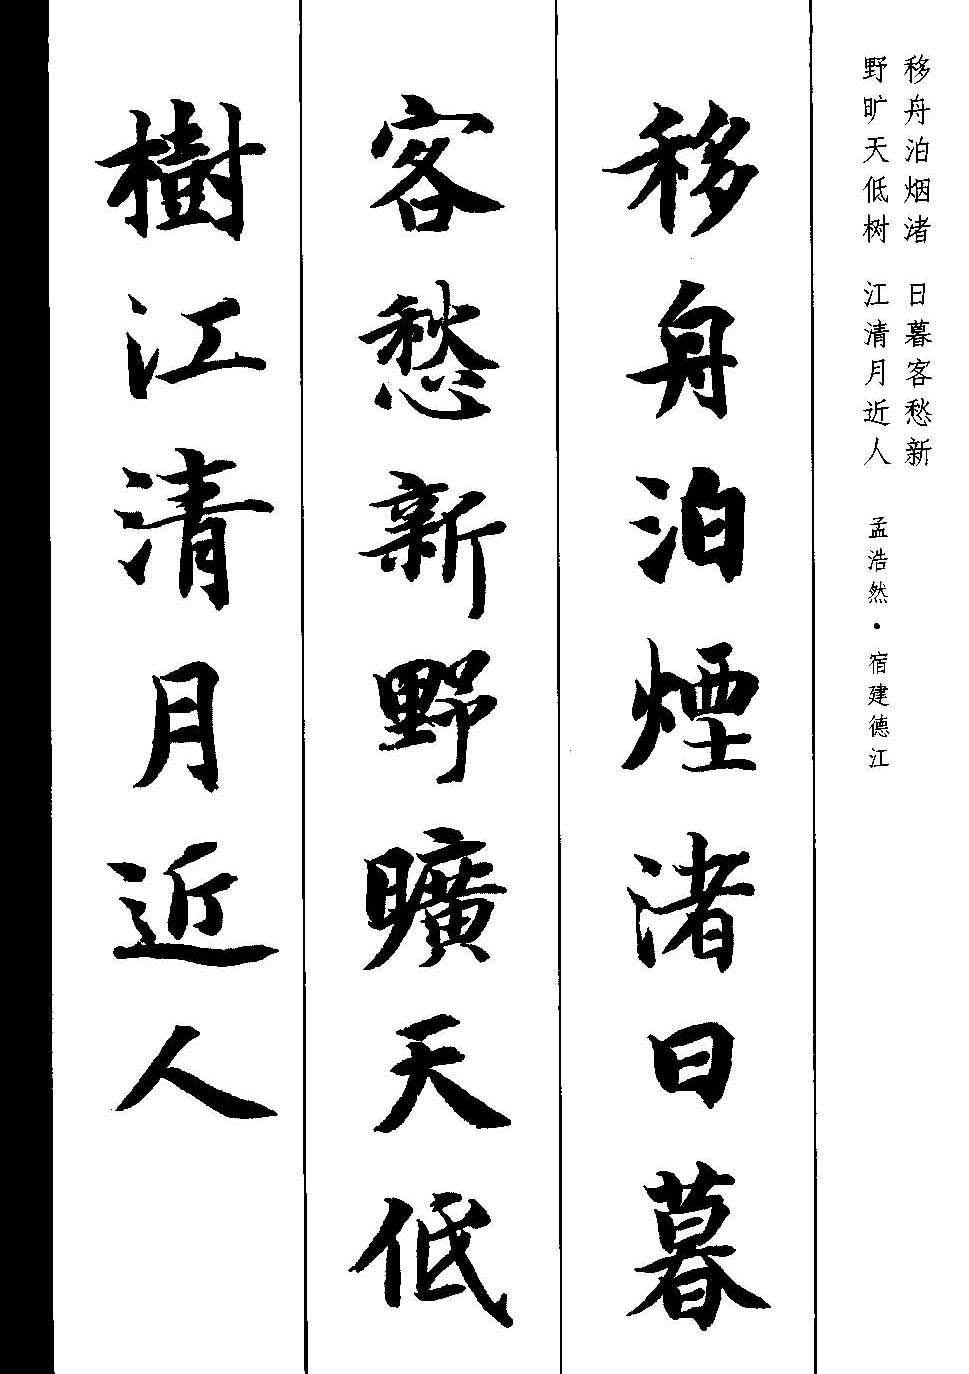 移舟泊烟渚 日暮客愁新
野旷天低树 江清月近人
孟浩然·宿建德江
移舟泊煙渚日暮
客愁新野曠天低
樹江清月近人